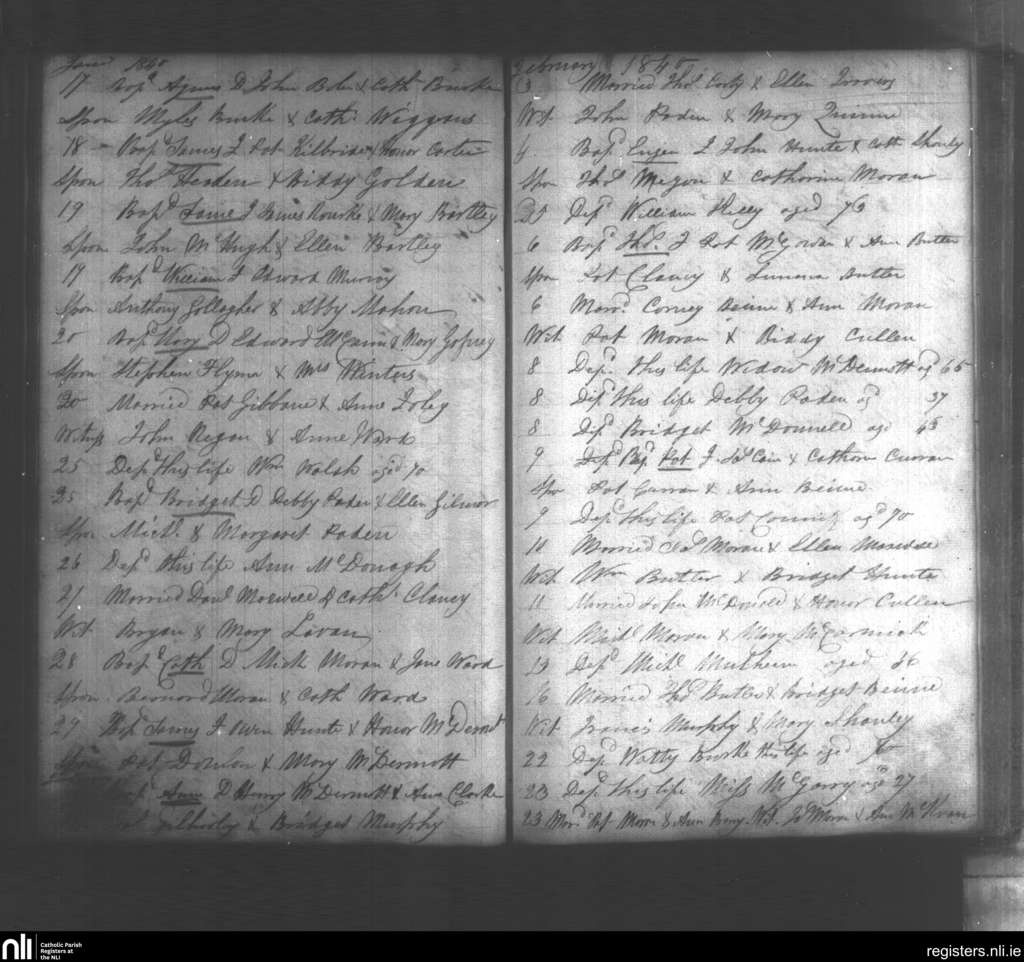 1840
17 Bapd Agnes D John & Cath Burke
Spon Myles Burke & Cath Wiggans
18 Bapd James S Pat Kilbride & Honor Carter
Spon Thos & Biddy Golden
19 Bapd James S James Rourke & Mary Bartley
Spon John McHugh & Ellen Bartley
19 Bapd William S Edward Murray
Spon Anthony Gollagher & Abby Mahon
20 Bapd D Edward McGann & Mary
Spon Stephen Flynn & Mrs Winters
20 Married Pat Gibbons & Anne Foley
Witness John Regan & Anne Ward
25 Depd this life Wm Walsh aged 70
25 Bapd Bridget D Debby Paden & Ellen Gilmor
Spon Michl & Margaret Paden
26 Depd this life Ann McDonagh
27 Married Danl Maxwell & Cath Clancy
Wit Bryan & Mary Lavan
28 Bapd Cath D Mick Moran & Jane Ward
Spon Bernard Moran & Cath Ward
29 Bapd James S Owen Hunte & Honor McDermt
Pat & Mary McDermott
Bapd Anne D Henry McDermott & Ann Clarke
& Bridget Murphy
February 1840
3 Married Thos & Ellen
Wit John Paden & Mary Quinne
4 Bapd Eugen S John Hunte & Cath Shanly
Spon Thos & Catharine Moran
25 Depd William Kelly aged 76
6 Bapd Thos S Pat McGowan & Ann Butler
Spon Pat Clancy & Butler
6 Mard Corney Beirne & Ann Moran
Wit Pat Moran & Biddy Cullen
8 Depd this life Widow McDermott agd 65
8 Depd this life Debby Paden agd 37
8 Depd Bridget McDonnell agd 63
9 Bapd Pat S Jas Cain & Cathorn Curran
Spo Pat Curran & Ann Beirne
9 Depd this life Pat agd 70
11 Married Jas Moran & Ellen
Wit Wm Butler & Bridget Hunte
11 Married John McDonald & Honor Cullen
Wit Michl Moran & Mary McCormick
13 Depd Michl Mulhern aged 36
16 Married Thos Butler & Bridget Beirne
Wit Francis Murphy & Mary Shanley
22 Depd Watty Burke this life aged
23 Depd this life Miss McGarry agd 27
23 Mard Pat Moran & Ann Wit Jas Moran & Ann McKeon
nli
Catholic Parish
Registers at
the NLI
registers.nli.ie